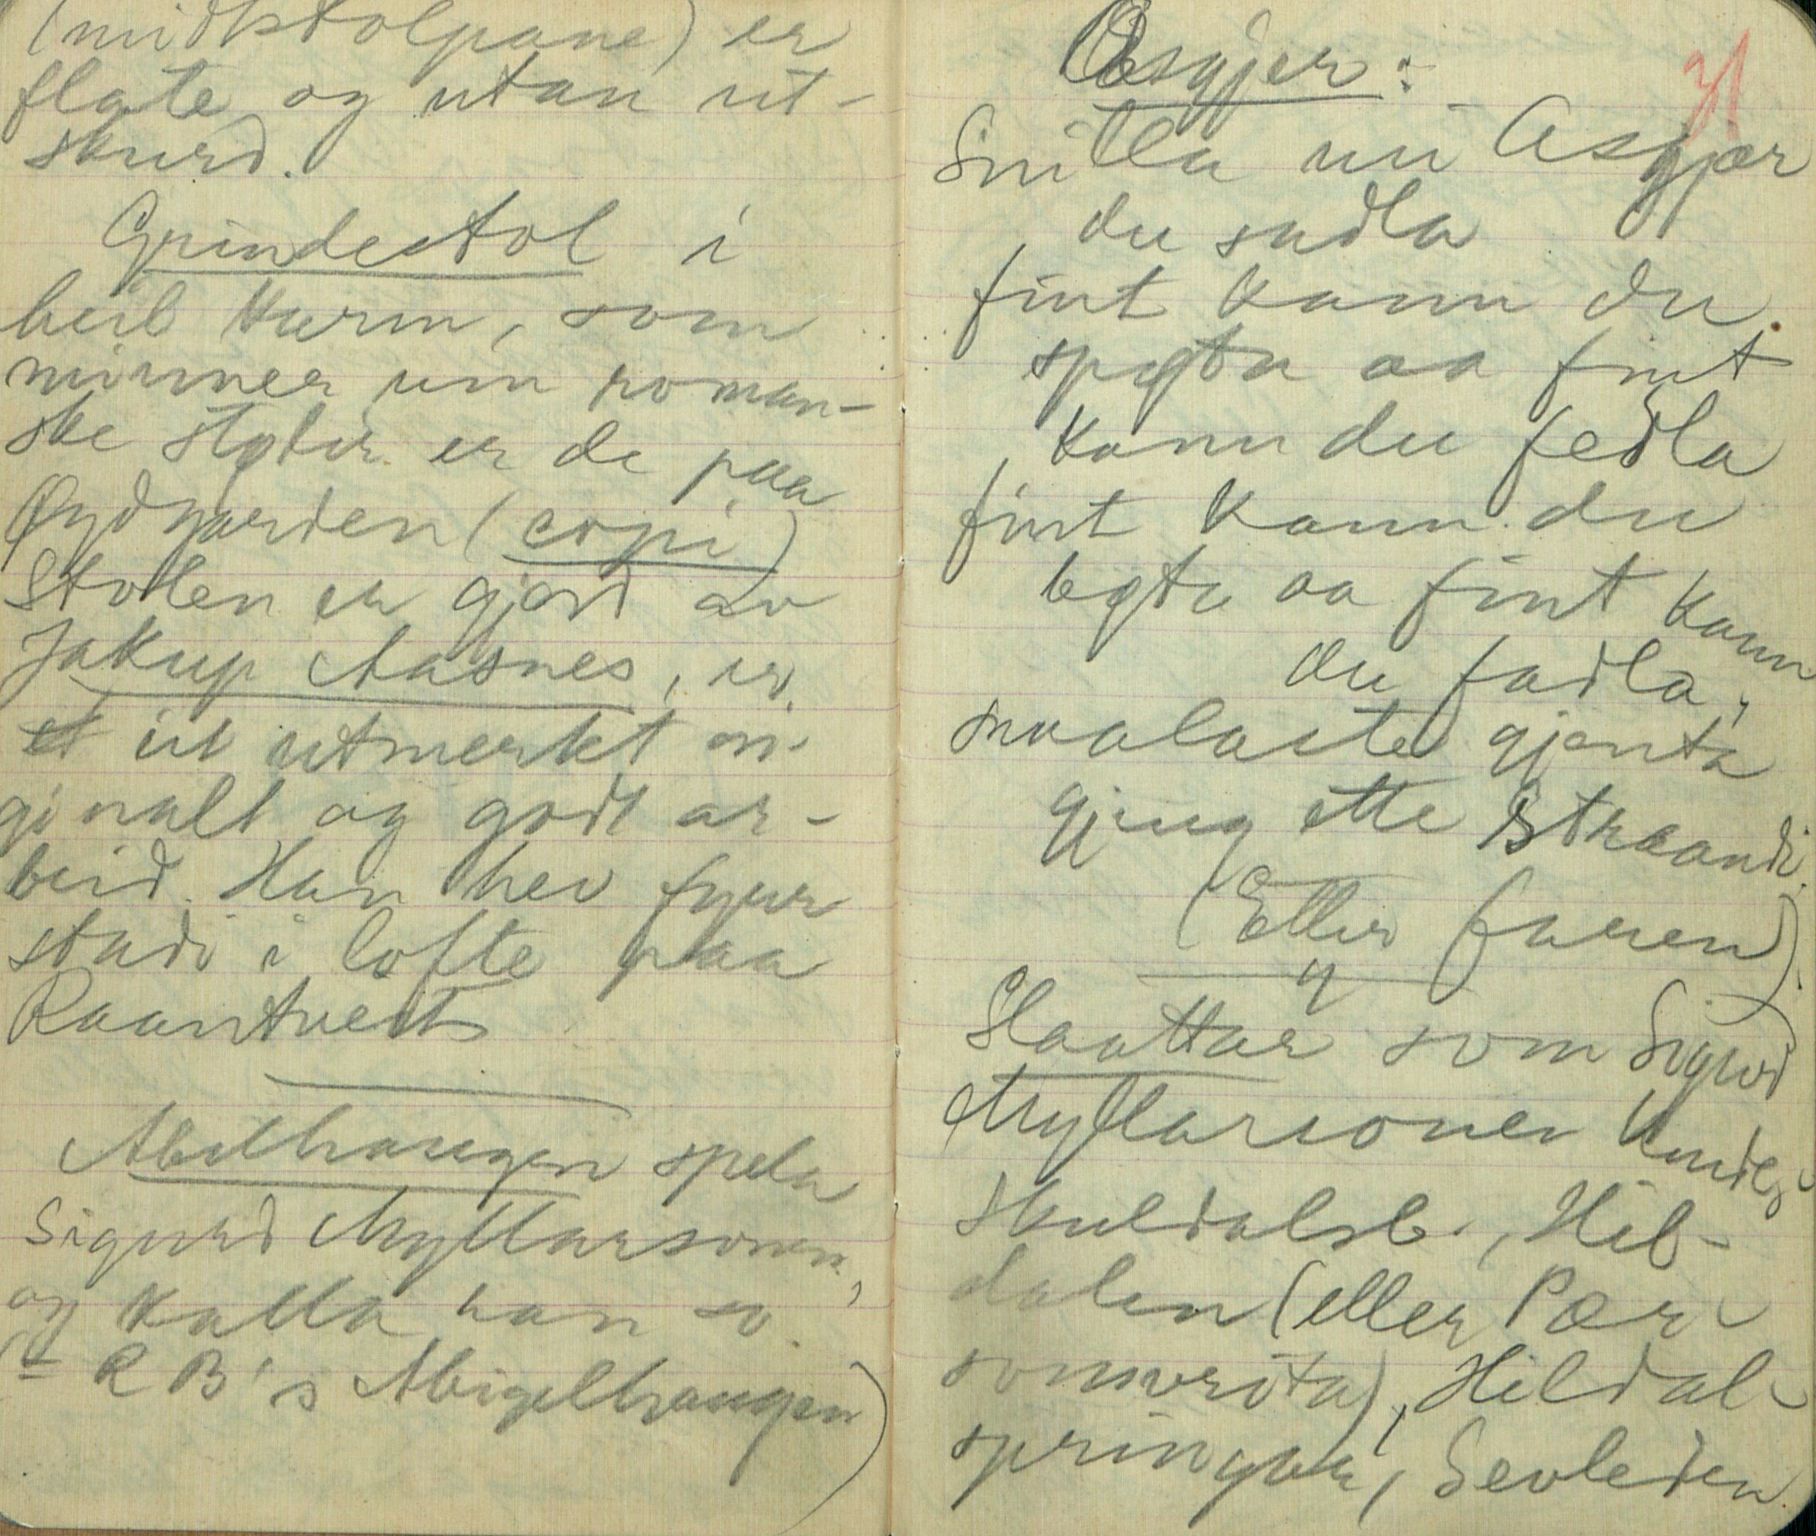 (midtstolpane) er
flate og utan ut-
skurd.
Grindestol i
heil karm, som
minner um roman-
ske stolar er de paa
Øydgarden (copi)
Stolen er gjord av
Jakup Aasnes, er
et eit utmerkt ori-
ginalt og godt ar-
beid. Han hev fyrr
stadi i lofte paa
Raantveit
Abelhaugen spela
Sigurd Myllarsonen,
og kalla han so.
(= R B's Abigelhaugen)
31
Asgjer:
Snilla mi Asgjær
du sadla
fint kann du
spøta aa fint
kann du fedla
fint kann du
bøta aa fint kann
du fadla,
smalaste gjenta
gjeng ette Straandi
(Eller faren)
Slaattar som Sigurd
Myllarsonen kunde,
Skuldalsb., Hil-
dalen (eller Pær-
sonsvrita), Hildal-
springar, Sevleden